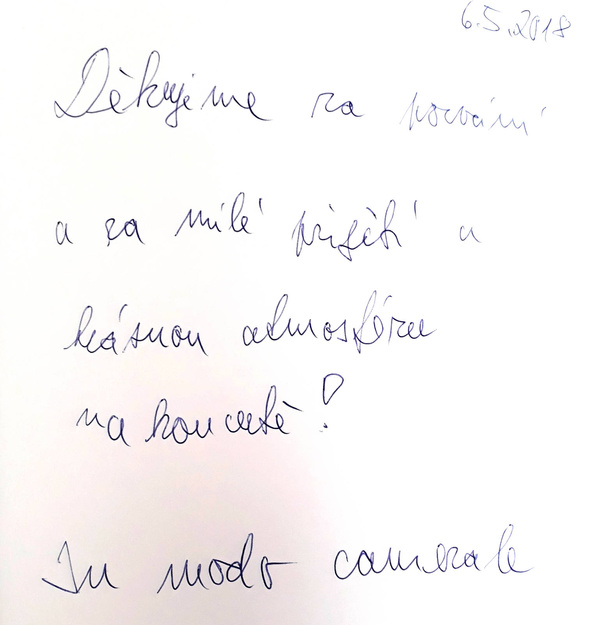 6.5.2018
Děkujeme za pozvání
a za milé přijetí a
krásnou atmosféru
na koncertě!
In modo camerale